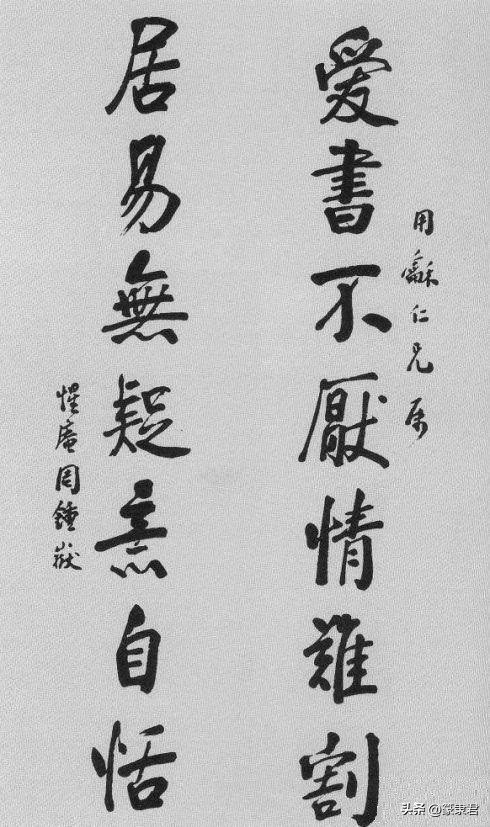 用龢仁兄属
愛書不厭情難割
居易無疑意自恬
惺庵周鍾嶽
头条 @篆隶君